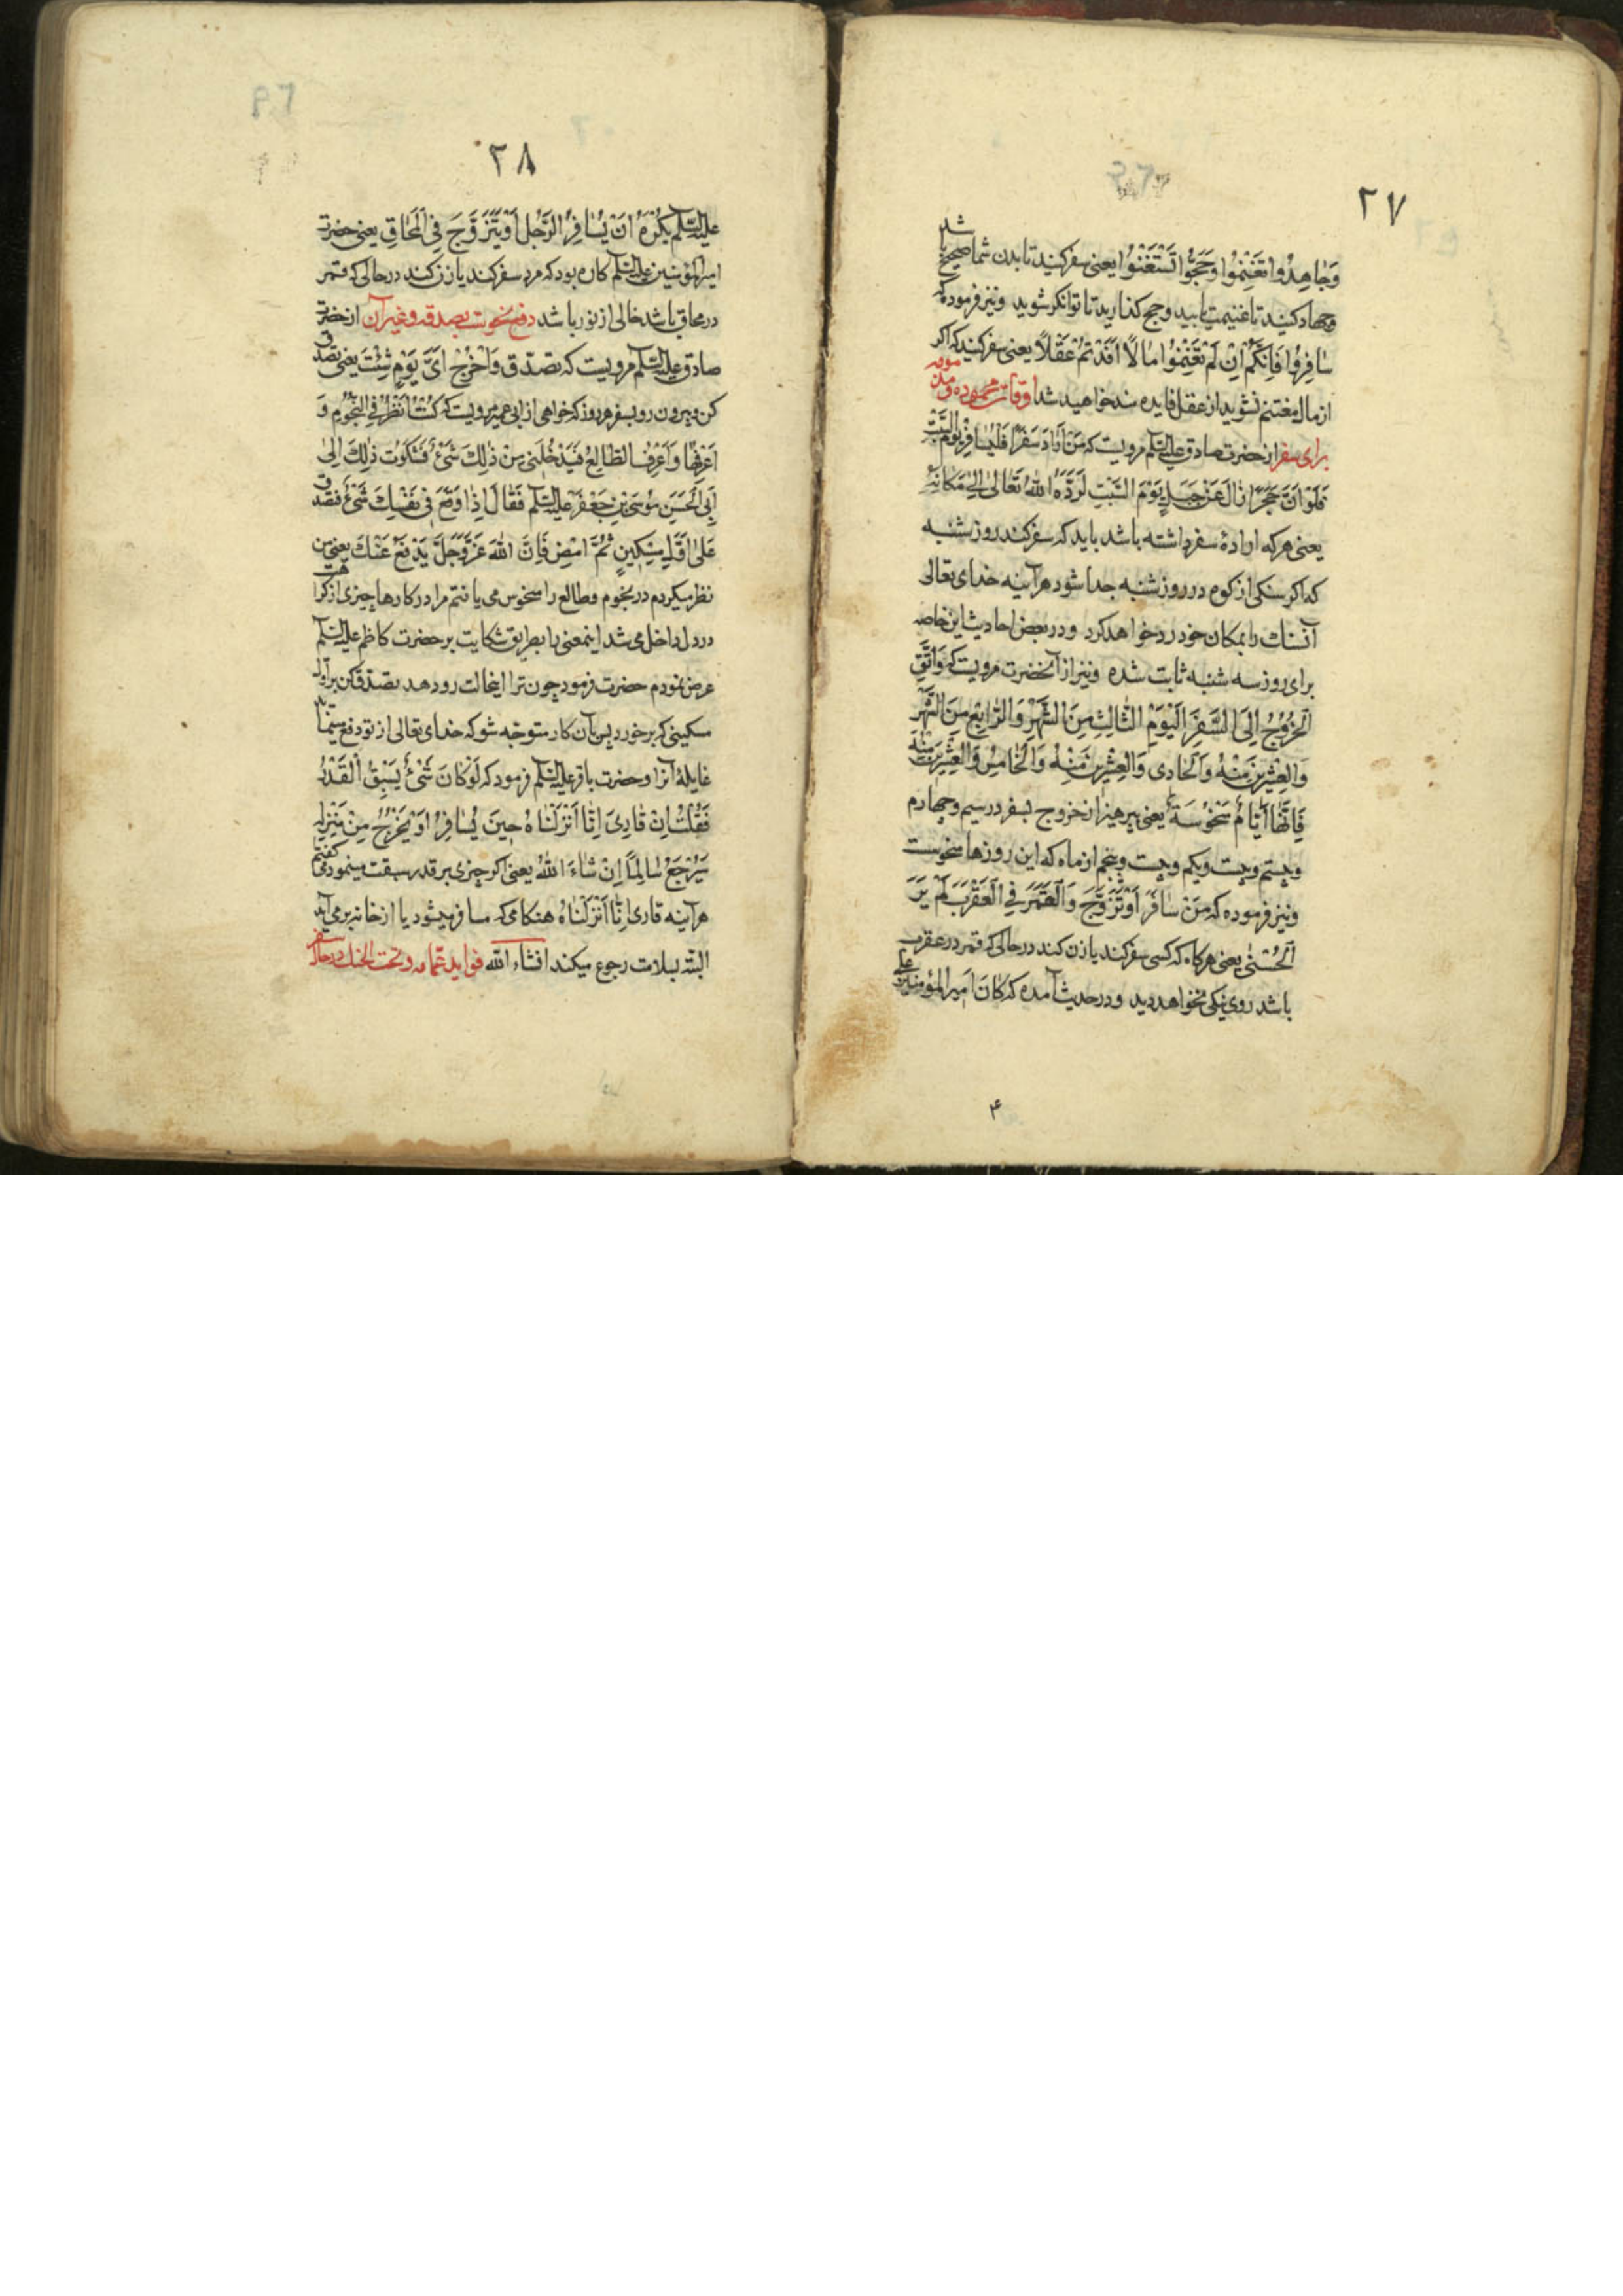 ۲۷
وَجاهِدُوا تَغْنِمُوا وَحَجُّوا تَسْتَغْنُوا یعنی سفر کنید تا بدن شما صحیح باشد
وجهاد کنید تا غنیمت یابید وحج کذارید تا توانکر شوید ونیز فرموده که
سافِرُوا فَاِنَّکُمْ اِنْ لَمْ تَغْنِمُوا مالًا اَفَدْتُمْ عَقْلًا یعنی سفر کنید که اکر
از مال مغتنم نشوید از عقل فایده مند خواهید شد اوقات محموده ومذمومه
برای سفر از حضرت صادق علیه السّلم مرویست که مَنْ اَرادَ سَفَرًا فَلْیُسافِرْ یَوْمَ السَّبْتِ
فَلَوْ اَنَّ حَجَرًا زالَ عَنْ جَبَلٍ یَوْمَ السَّبْتِ لَرَدَّهُ اللهُ تَعالیٰ اِلیٰ مَکانِهِ
یعنی هر که ارادهٔ سفر داشته باشد باید که سفر کند روز شنبه
که اکر سنکی از کوه در روز شنبه جدا شود هرآینه خدای تعالی
آنسنك را بمکان خود رد خواهد کرد ودر بعض احادیث این خاصه
برای روز سه شنبه ثابت شده ونیز از آنحضرت مرویست که وَاتَّقِ
اَلْخُرُوجَ اِلَی السَّفَرِ اَلْیَوْمَ الثّالِثَ مِنَ الشَّهْرِ وَالرّابِعَ مِنَ الشَّهْرِ
وَالْعِشْرِینَ مِنْهُ وَالْحادی وَالْعِشْرِینَ مِنْهُ وَالْخامِسَ وَالْعِشْرِینَ مِنْهُ
فَاِنَّها اَیّامٌ مَنْحُوسَةٌ یعنی بپرهیز از خروج بسفر در سیم وچهارم
وبیستم وبیست ویکم وبیست وپنجم از ماه که این روزها منحوست
ونیز فرموده که مَنْ سافَرَ اَوْ تَزَوَّجَ وَالْقَمَرُ فِی الْعَقْرَبِ لَمْ یَرَ
اَلْحُسْنیٰ یعنی هرکاه که کسی سفر کند یا زن کند در حالی که قمر در عقرب
باشد روی نیکی نخواهد دید ودر حدیث آمده که کانَ اَمِیرُ المُؤمِنین
۴
۲۸
علیه السّلم یَکْرَهُ اَنْ یُسافِرَ الرَّجُلُ اَوْ یَتَزَوَّجَ فِی الْمَحاقِ یعنی حضرت
امیر المؤمنین علیه السّلم کاره بود که مرد سفر کند یا زن کند در حالی که قمر
در محاق باشد خالی از نور باشد دفع نحوست بصدقه وغیر آن از حضرت
صادق علیه السّلم مرویست که تصدّق وَاخْرُجْ اَیَّ یَوْمٍ شِئْتَ یعنی تصدق
کن وبیرون رو بسفر هر روز که خواهی از ابی عمیر مرویست که کُنْتُ اَنْظُرُ فِی النُّجُومِ وَ
اَعْرِفُها وَاَعْرِفُ الطّالِعَ فَیَدْخُلُنِی مِنْ ذٰلِكَ شَیْءٌ فَشَکَوْتُ ذٰلِكَ اِلیٰ
اَبِی الْحَسَنِ مُوسَی بْنِ جَعْفَرٍ علیه السّلم فَقالَ اِذا وَقَعَ فِی نَفْسِكَ شَیْءٌ فَتَصَدَّقْ
عَلیٰ اَوَّلِ مِسْکِینٍ ثُمَّ امْضِ فَاِنَّ اللهَ عَزَّوَجَلَّ یَدْفَعُ عَنْكَ یعنی من
نظر میکردم در نجوم وطالع را منحوس می یافتم مرا در کارها چیزی از کراهت
در دل داخل می شد اینمعنی را بطریق شکایت بر حضرت کاظم علیه السّلم
عرض نمودم حضرت فرمود چون ترا اینحالت رو دهد تصدّق کن بر اول
مسکینی که برخورد پس بآن کار متوجّه شو که خدای تعالی از تو دفع مینماید
غایلهٔ آنرا وحضرت باقر علیه السّلم فرمود که لَوْ کانَ شَیْءٌ یَسْبِقُ الْقَدَرَ
فَقُلْتُ اِنَّ قارِئَ اِنّا اَنْزَلْناهُ حِینَ یُسافِرُ اَوْ یَخْرُجُ مِنْ مَنْزِلِهِ
سَیَرْجِعُ سالِمًا اِنْ شاءَ اللهُ یعنی اکر چیزی بر قدر سبقت مینمود می کفتم
هرآینه قاری اِنّا اَنْزَلْناهُ هنکامی که مسافر میشود یا از خانه بر می آید
البتّه بسلامت رجوع میکند انشاء الله فواید عمّامه وتحت الحنك در حال سفر